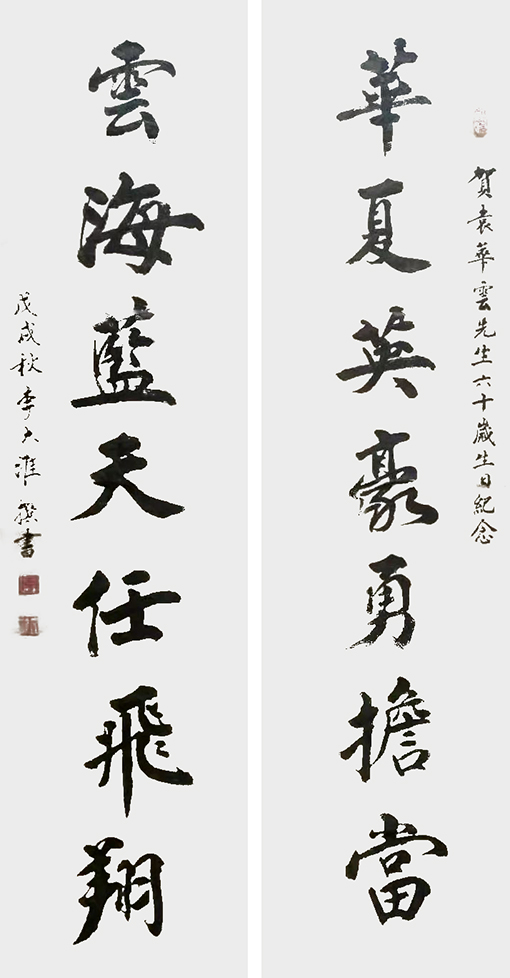 賀袁華雲先生六十歲生日紀念
華夏英豪勇擔當
雲海藍夫任飛翔
戊戌秋李大淮撰書